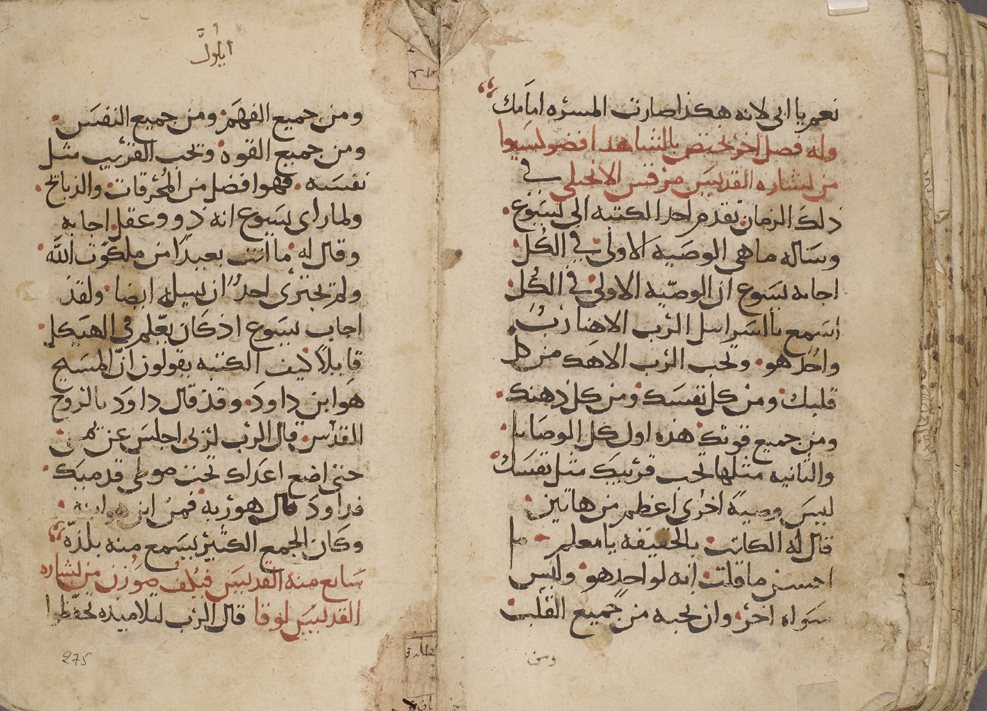 نعم يا ابي لانه هكذا صارت المسره امامك
وله فصل اخر يختص بالمتباهدا فصوليسوا
من بشاره القديس مرقس الانجيلي في
ذلك الزمان تقدم احد الكتبه الى يسوع
وساله ما هي الوصية الاولى في الكل
اجابه يسوع ان الوصيه الاولى في الكل
اسمع يا اسراييل الرب الاهنا رب
واحد هو وتحب الرب الاهك من كل
قلبك ومن كل نفسك ومن كل ذهنك
ومن جميع قوتك هذه اول كل الوصايا
والثانيه مثلها تحب قريبك مثل نفسك
ليس وصية اخرى اعظم من هاتين
قال له الكاتب بالحقيقه يا معلم
احسن ما قلت انه لواحد هو وليس
سواه اخر وان تحبه من جميع القلب
ومن
ايلول
ومن جميع الفهم ومن جميع النفس
ومن جميع القوة وتحب القريب مثل
نفسه فهو افضل من المحرقات والذبايح
ولما راى يسوع انه ذو وعقل اجابه
وقال له ما انت بعيدا من ملكوت الله
ولم يجترى احد ان يسيله ايضا ولقد
اجاب يسوع اذ كان يعلم في الهيكل
قايلا كيف الكتبه يقولون ان المسيح
هو ابن داود وقد قال داود بالروح
القدس قال الرب لربي اجلس عن يميني
حتى اضع اعداك تحت موطى قدميك
فداود قال هو ربه فمن اين هو ابنه
وكان الجمع الكثير يسمع منه بلذه
سابع منه القديس من بشاره
القديس لوقا قال الرب لتلاميذه تحفظوا
275